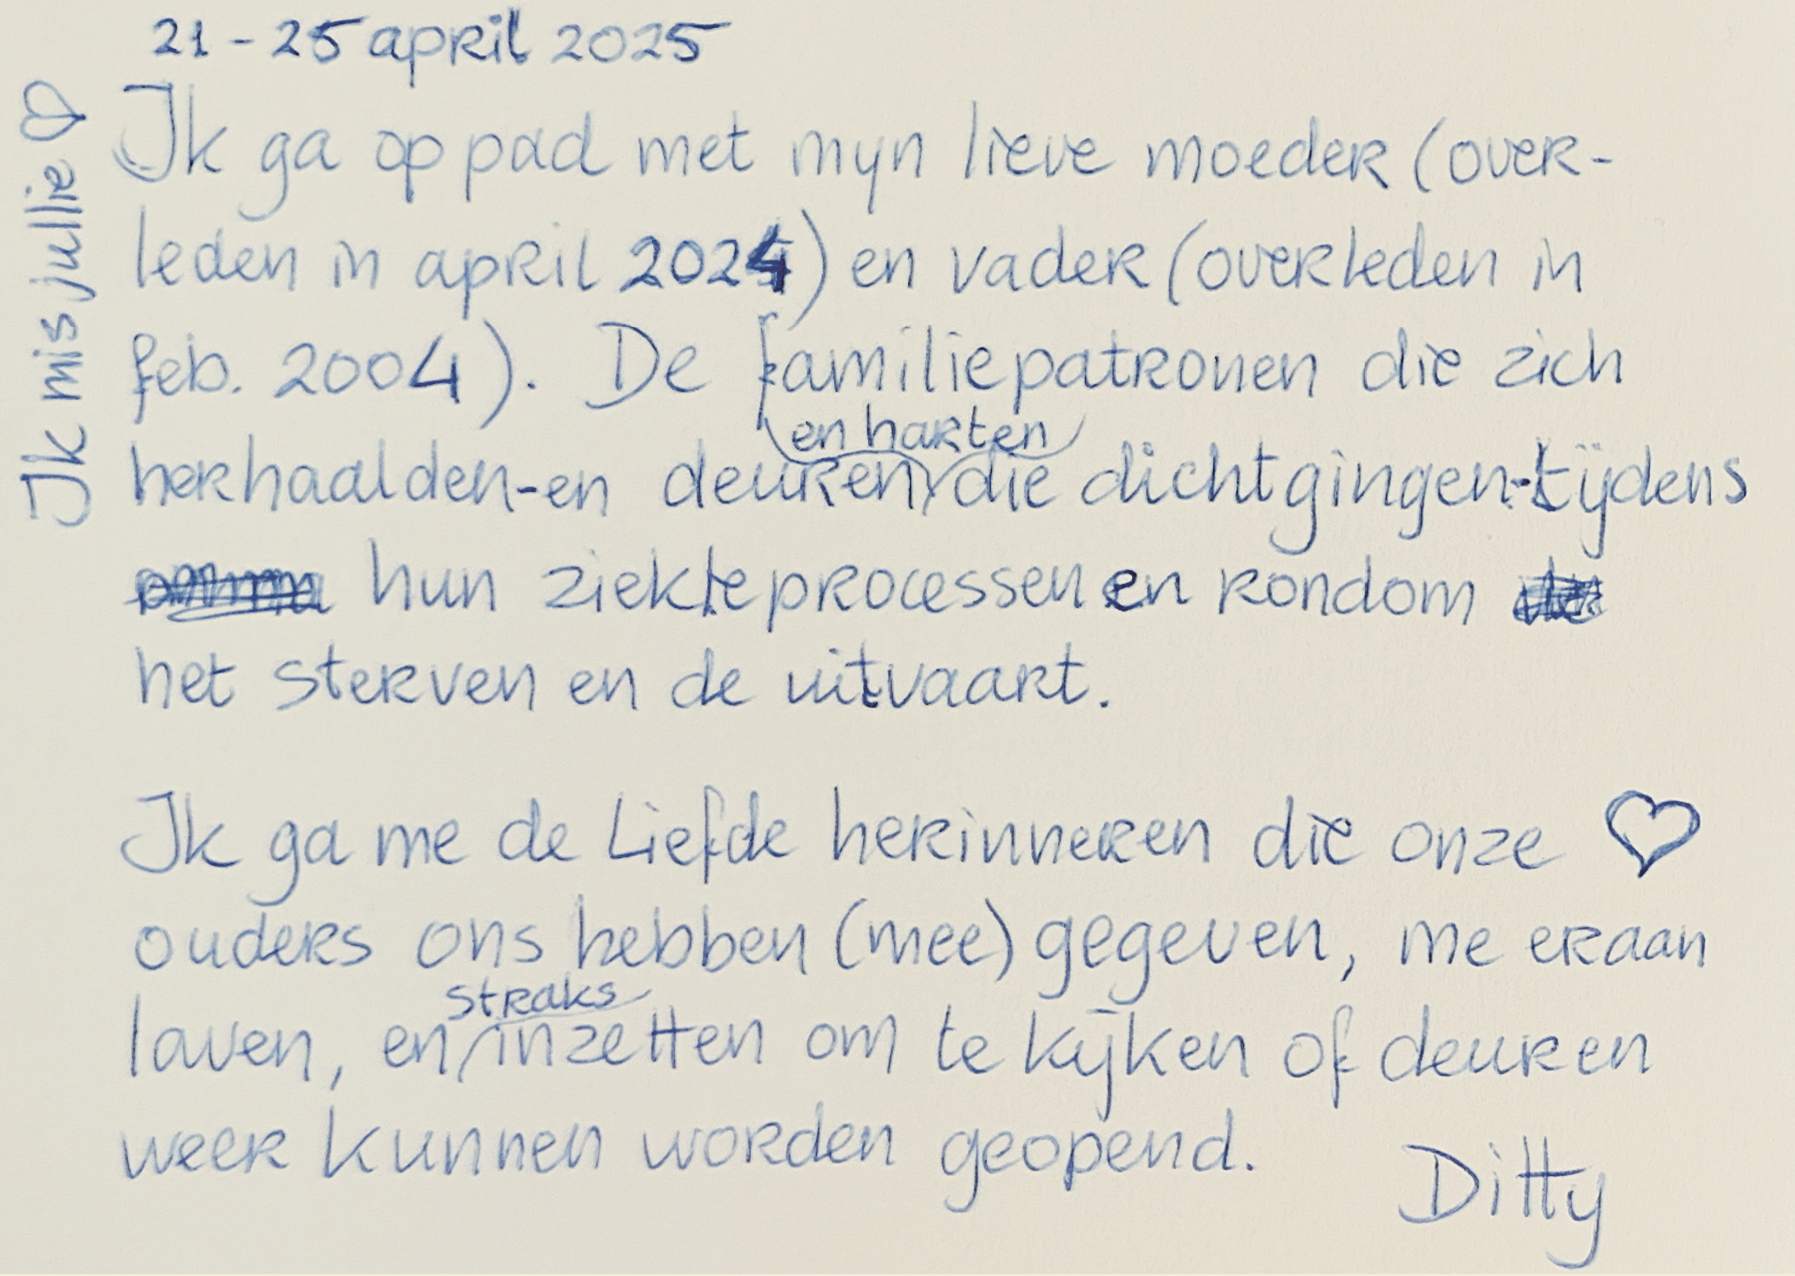 21 - 25 april 2025
Ik ga op pad met mijn lieve moeder (over-
leden in april 2024) en vader (overleden in
feb. 2004). De familiepatronen die zich
en harten
herhaalden-en deuren die dichtgingen-tijdens
hun ziekteprocessen en rondom
het sterven en de uitvaart.
Ik ga me de Liefde herinneren die onze ♡
ouders ons hebben (mee)gegeven, me eraan
straks
laven, en inzetten om te kijken of deuren
weer kunnen worden geopend.
Ditty
Ik mis jullie ♡